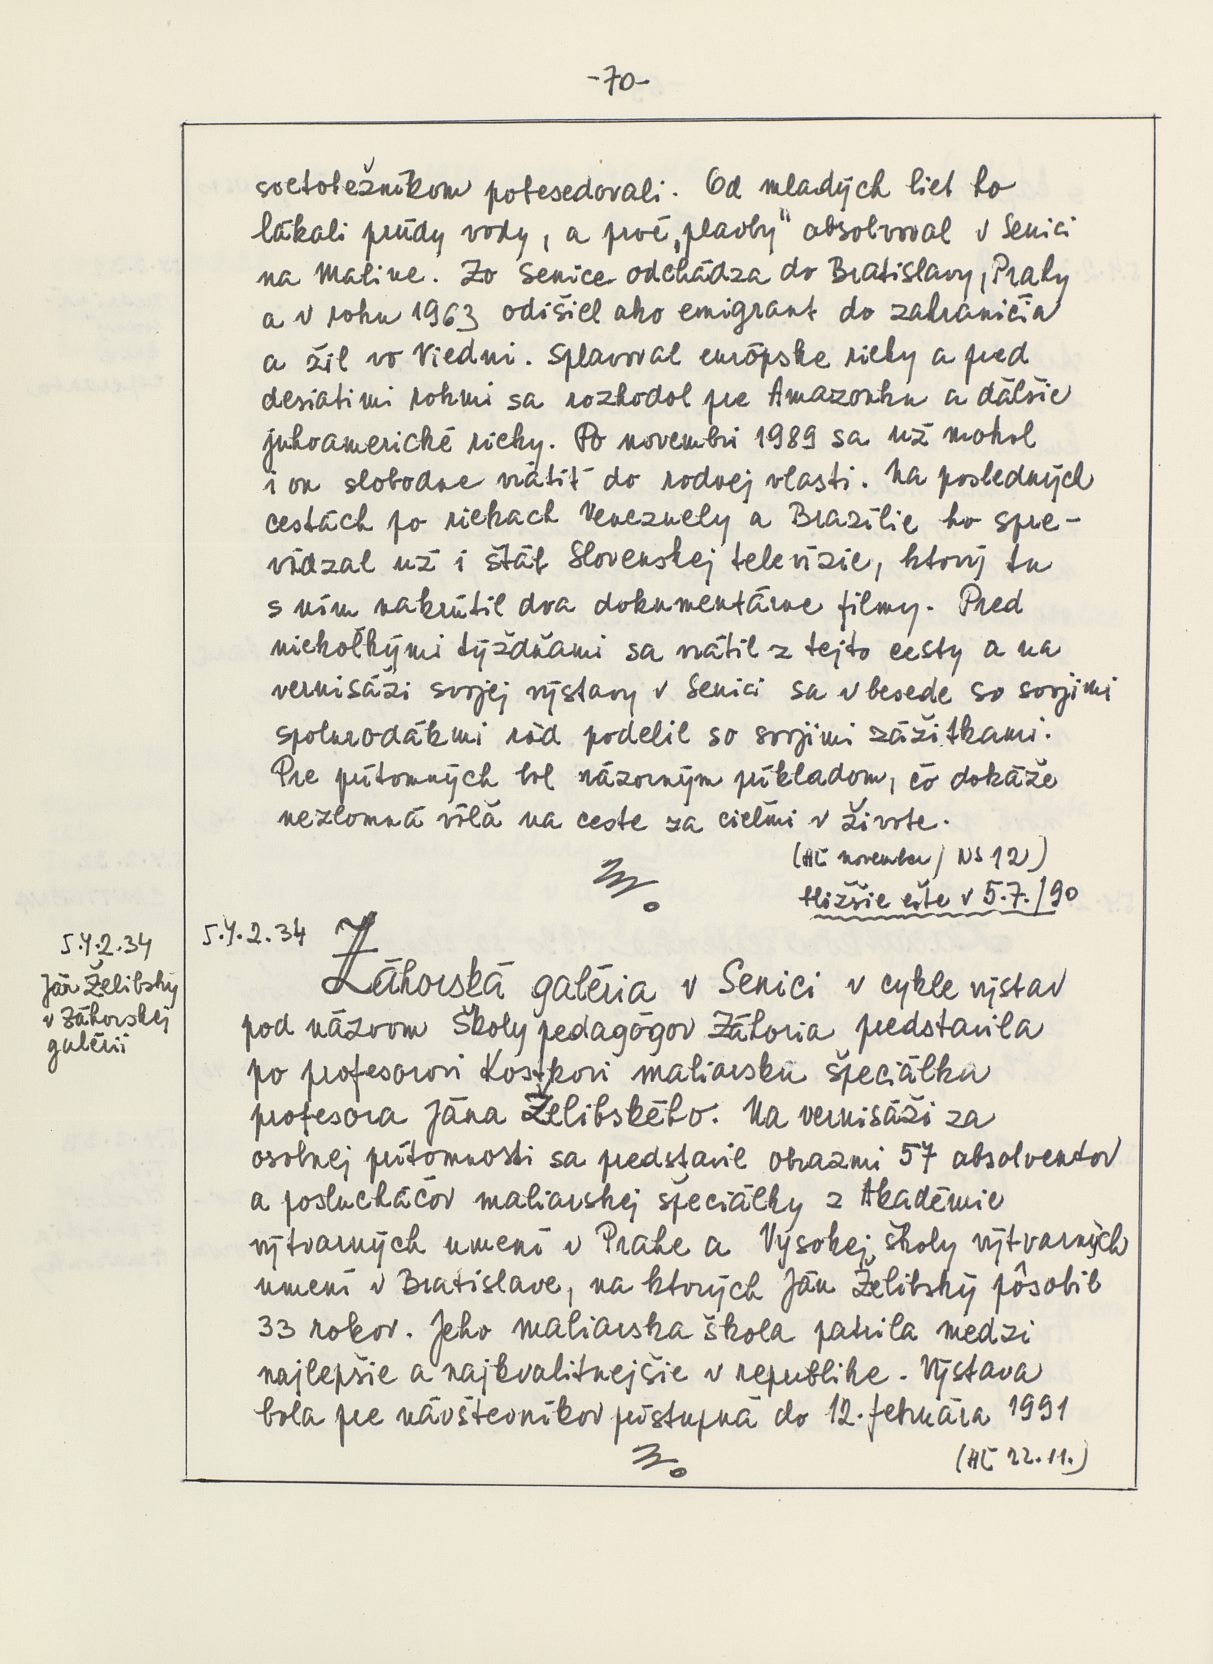 -70-
svetobežníkom pobesedovali. Od mladých liet ho
lákali prúdy vody, a prvé „plavby" absolvoval v Senici
na Maline. Zo Senice odchádza do Bratislavy, Prahy
a v roku 1963 odišiel ako emigrant do zahraničia
a žil vo Viedni. Splavoval európske rieky a pred
desiatimi rokmi sa rozhodol pre Amazonku a ďalšie
juhoamerické rieky. Po novembri 1989 sa už mohol
i on slobodne vrátiť do rodnej vlasti. Na posledných
cestách po riekach Venezuely a Brazílie ho spre-
vádzal už i štáb Slovenskej televízie, ktorý tu
s ním nakrútil dva dokumentárne filmy. Pred
niekoľkými týždňami sa vrátil z tejto cesty a na
vernisáži svojej výstavy v Senici sa v besede so svojimi
spolurodákmi rád podelil so svojimi zážitkami.
Pre prítomných bol názorným príkladom, čo dokáže
nezlomná vôľa na ceste za cieľmi v živote.
(AČ november / NS 12)
bližšie ešte v 5.7./90
5.4.2.34
Ján Želibský
v Záhorskej
galérii
5.4.2.34
Záhorská galéria v Senici v cykle výstav
pod názvom Školy pedagógov Záhoria predstavila
po profesorovi Kostkovi maliarsku špeciálku
profesora Jána Želibského. Na vernisáži za
osobnej prítomnosti sa predstavil obrazmi 57 absolventov
a poslucháčov maliarskej špeciálky z Akadémie
výtvarných umení v Prahe a Vysokej školy výtvarných
umení v Bratislave, na ktorých Ján Želibský pôsobil
33 rokov. Jeho maliarska škola patrila medzi
najlepšie a najkvalitnejšie v republike. Výstava
bola pre návštevníkov prístupná do 12. februára 1991
(AČ 22.11.)